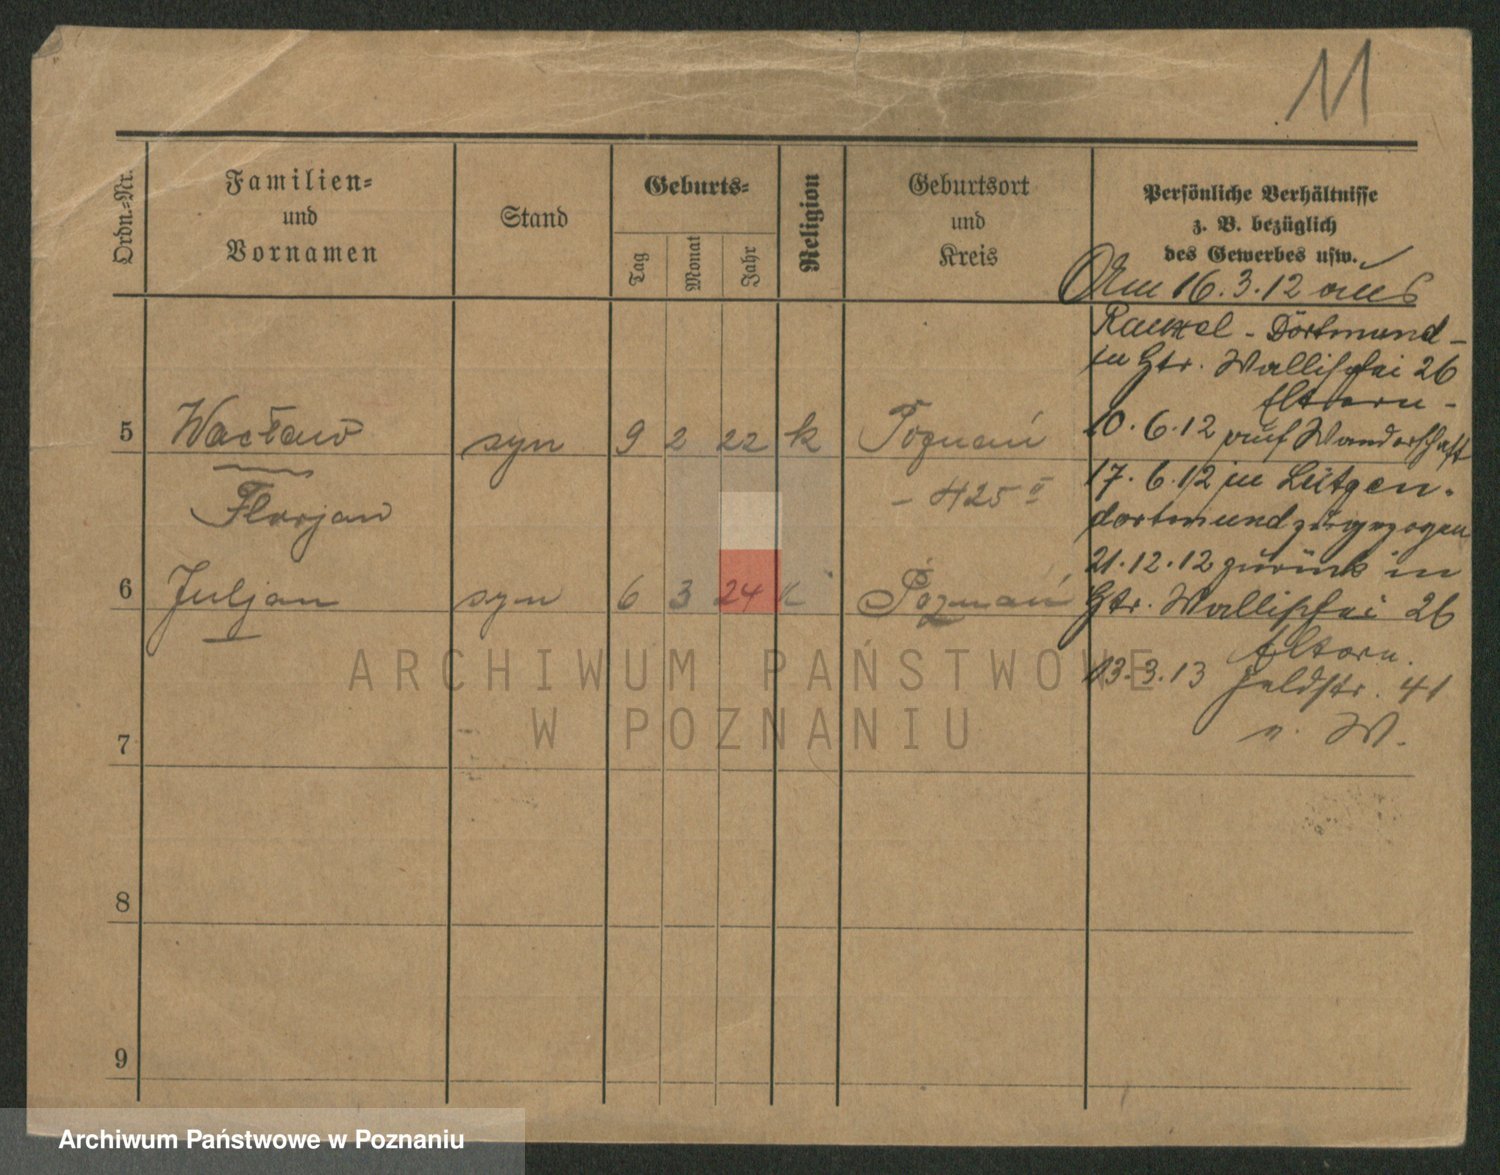 11
Ordn.-Nr.
Familien-
und
Vornamen
Stand
Geburts-
Tag
Monat
Jahr
Religion
Geburtsort
und
Kreis
Persönliche Verhältnisse
z. B. bezüglich
des Gewerbes usw.
Am 16.3.12 aus
Rauxel - Dortmund -
in Gtr. Wallischei 26
Eltern -
5 Wacław syn 9 2 22 k Poznań
10.6.12 auf Wanderschaft
Florjan
- 425
17.6.12 in Lütgen-
dortmund zugezogen
21.12.12 zurück in
6 Juljan syn 6 3 24 k Poznań
Gtr. Wallischei 26
Eltern.
13.3.13 Feldstr. 41
n. W.
7
8
9
ARCHIWUM PAŃSTWOWE
W POZNANIU
Archiwum Państwowe w Poznaniu